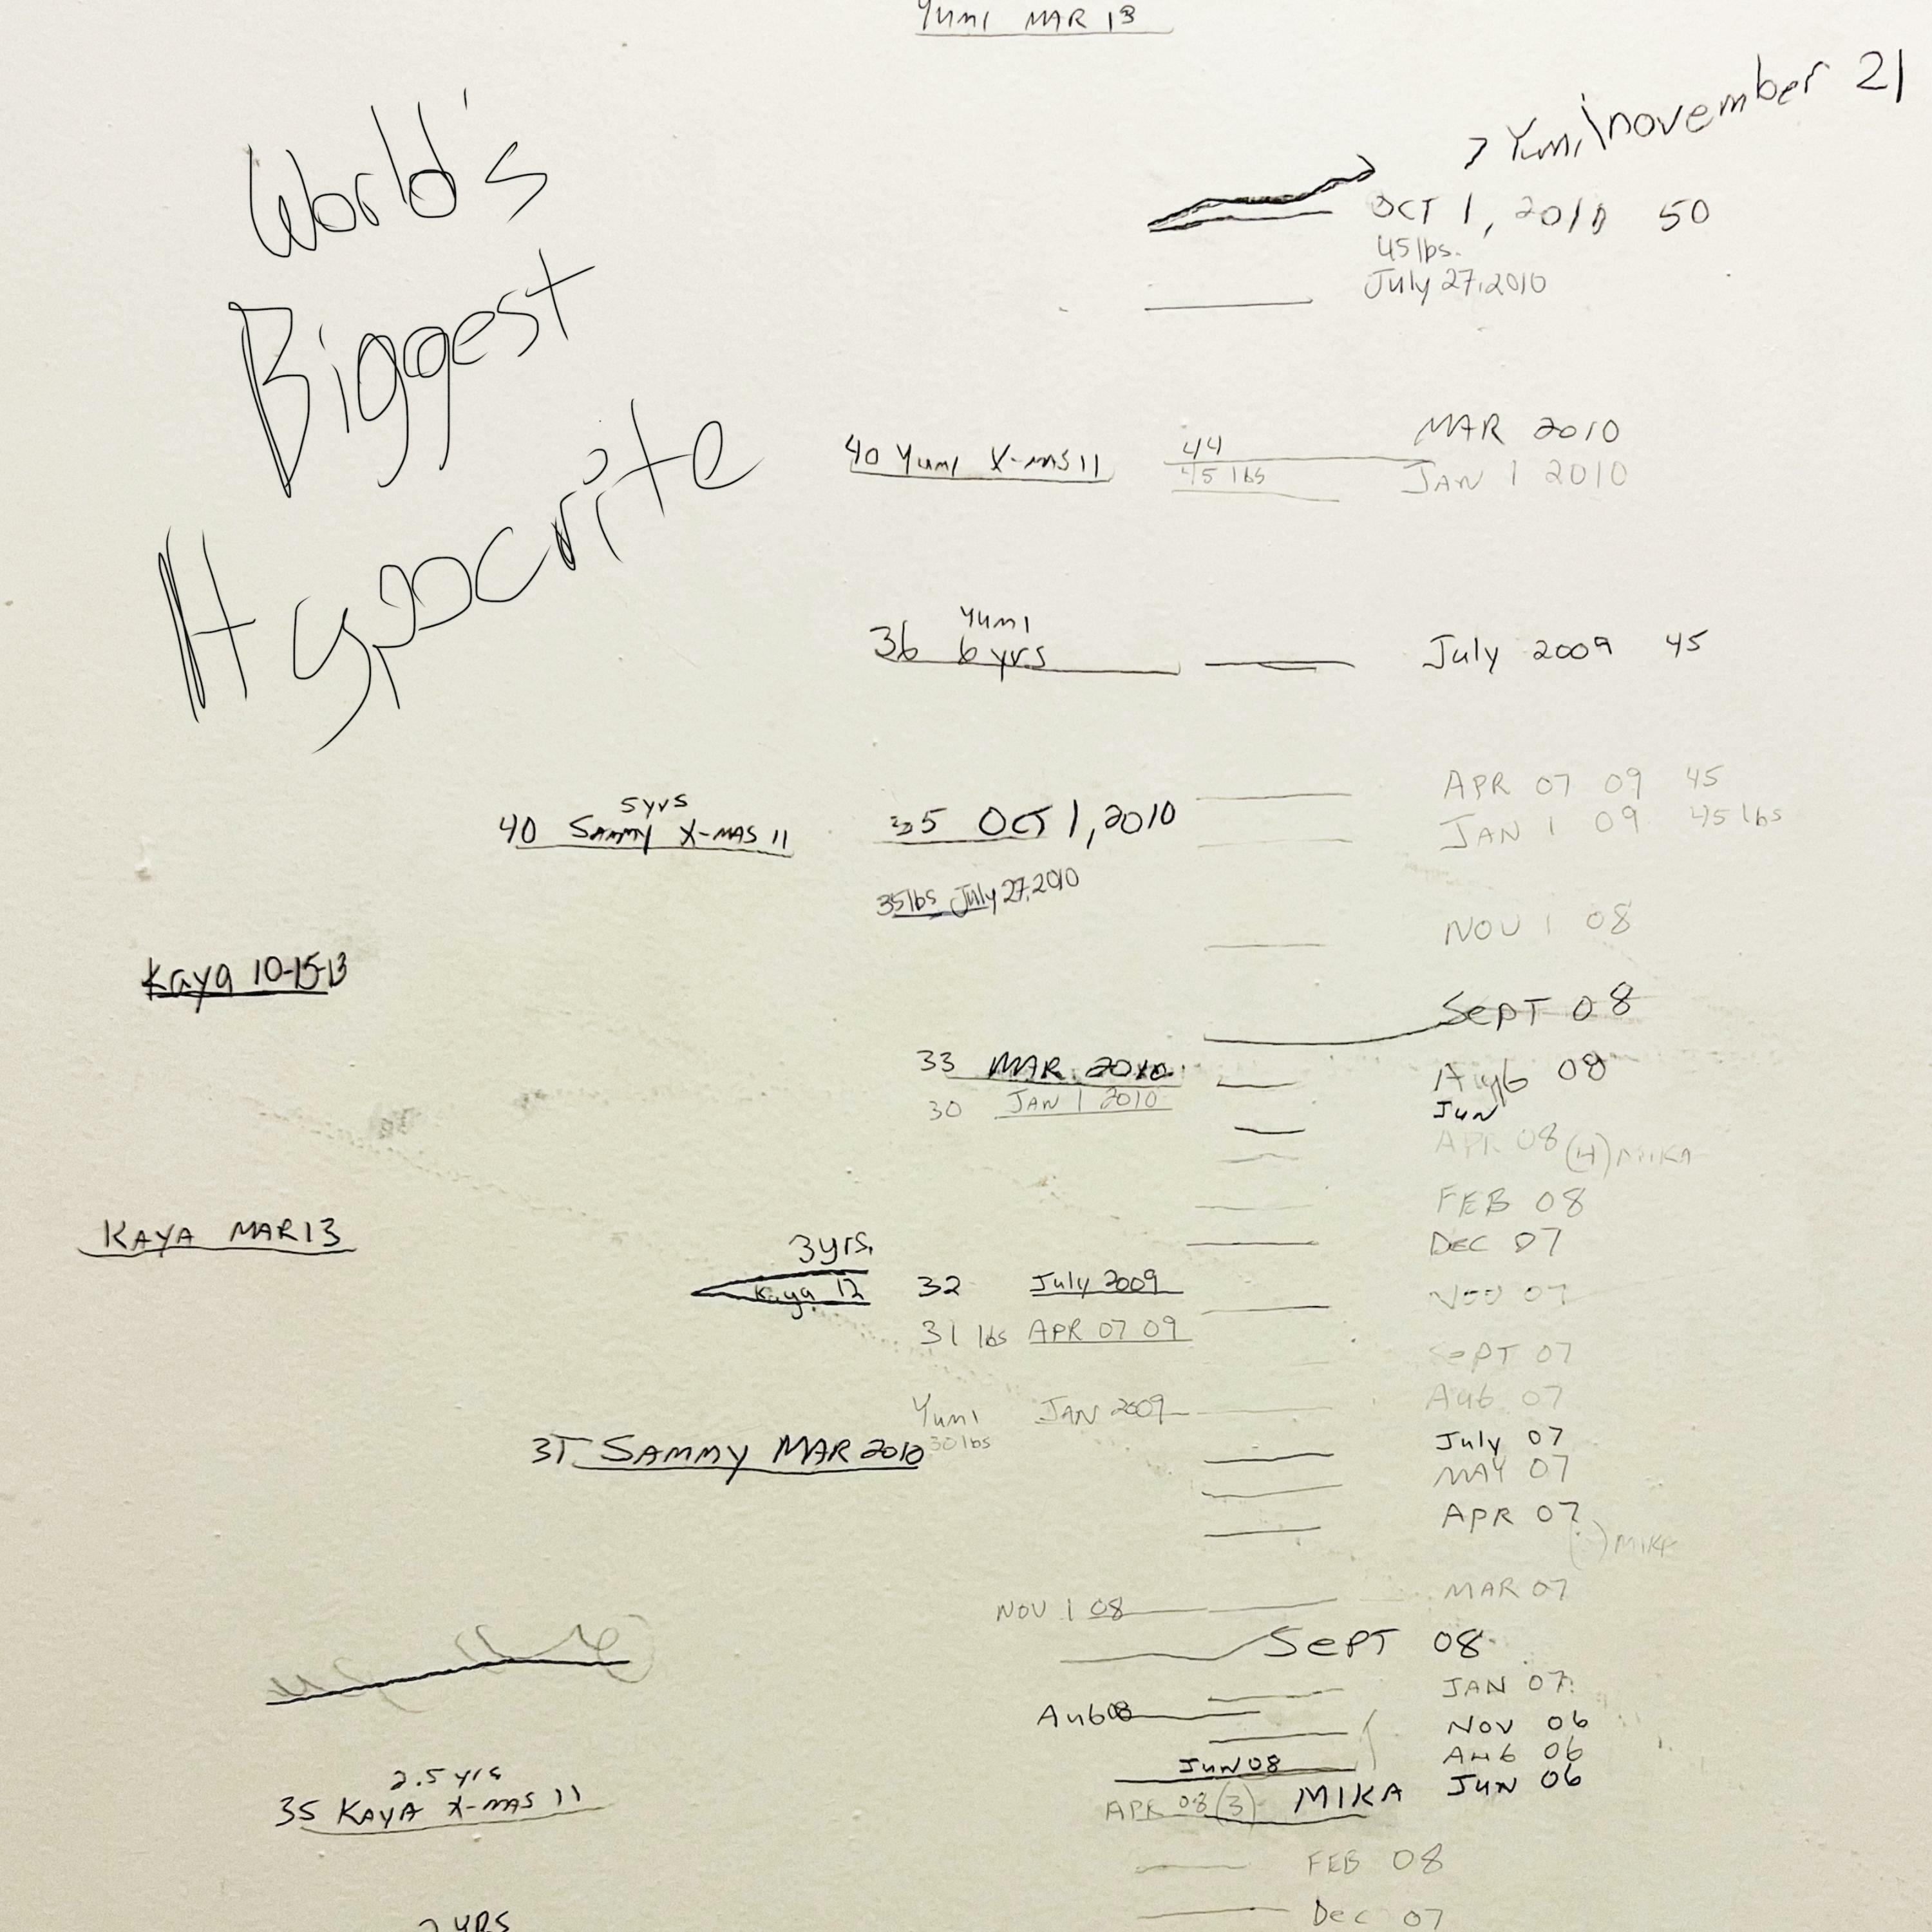 Yumi MAR 13
World's
Biggest
Hypocrite
> Yumi november 21
OCT 1, 2010 50
45 lbs.
July 27, 2010
40 Yumi X-MAS 11
44
MAR 2010
45 lbs
JAN 1 2010
Yumi
36 6 yrs
July 2009 45
APR 07 09 45
5 yrs
40 SAMMY X-MAS 11
35 OCT 1, 2010
JAN 1 09 45 lbs
35 lbs July 27, 2010
NOV 1 08
Kaya 10-15-13
SEPT 08
33 MAR 2010
AUG 08
30 JAN 1 2010
JUN
APR 08 (4) MIKA
FEB 08
KAYA MAR 13
DEC 07
3 yrs.
Kaya 12
32 July 2009
NOV 07
31 lbs APR 07 09
SEPT 07
AUG 07
Yumi JAN 2009
30 lbs
July 07
31 SAMMY MAR 2010
MAY 07
APR 07
MIKA
MAR 07
NOV 1 08
SEPT 08
JAN 07
AUG 08
NOV 06
AUG 06
JUN 08
2.5 yrs
35 KAYA X-MAS 11
APR 08 (3)
MIKA JUN 06
FEB 08
DEC 07
YRS